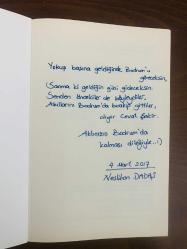 Yokuş başına geldiğinde Bodrum'u
göreceksin,
(Sanma ki geldiğin gibi gideceksin
Senden öncekiler de böyleydiler,
Akıllarını Bodrum'da bırakıp gittiler,
diyor Cevat Şakir.
Aklınızın Bodrum'da
kalması dileğiyle...!)
4 Mart 2017
Neslihan DADAŞ